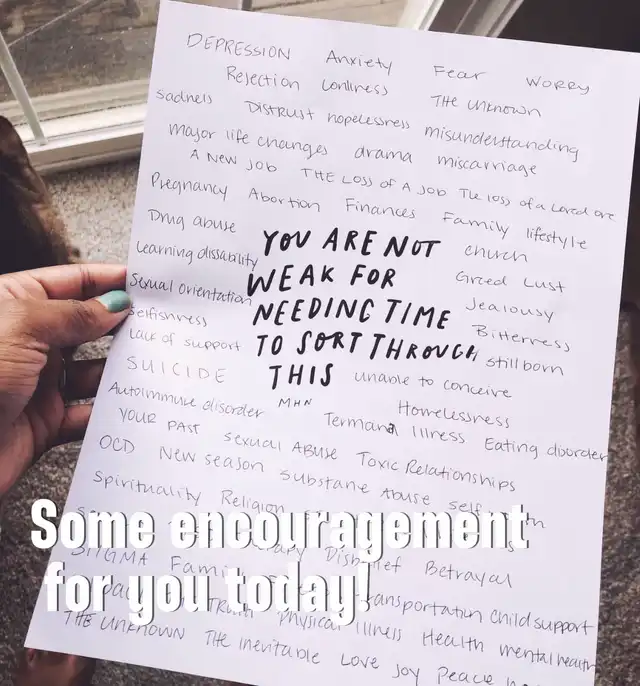 DEPRESSION Anxiety Fear WORRY
Rejection Lonliness THE UNKNOWN
Sadness DISTRUST hopelessness misunderstanding
major life changes drama miscarriage
A NEW JOB THE LOSS OF A JOB The loss of a loved one
Pregnancy Abortion Finances Family lifestyle
Drug abuse church
Learning dissability Greed Lust
Sexual orientation Jealousy
Selfishness Bitterness
YOU ARE NOT
WEAK FOR
NEEDING TIME
TO SORT THROUGH
THIS
Lack of support stillborn
SUICIDE unable to conceive
MHN
Autoimmune disorder Homelessness
YOUR PAST Termanal Illness Eating disorder
OCD Sexual ABUSE Toxic Relationships
NEW season substane Abuse self
Spirituality Religion
Disbelief Betrayal
STIGMA transportation child support
TRUTH physical Illness Health mental health
THE UNKNOWN THE inevitable Love Joy Peace
Some encouragement
for you today!